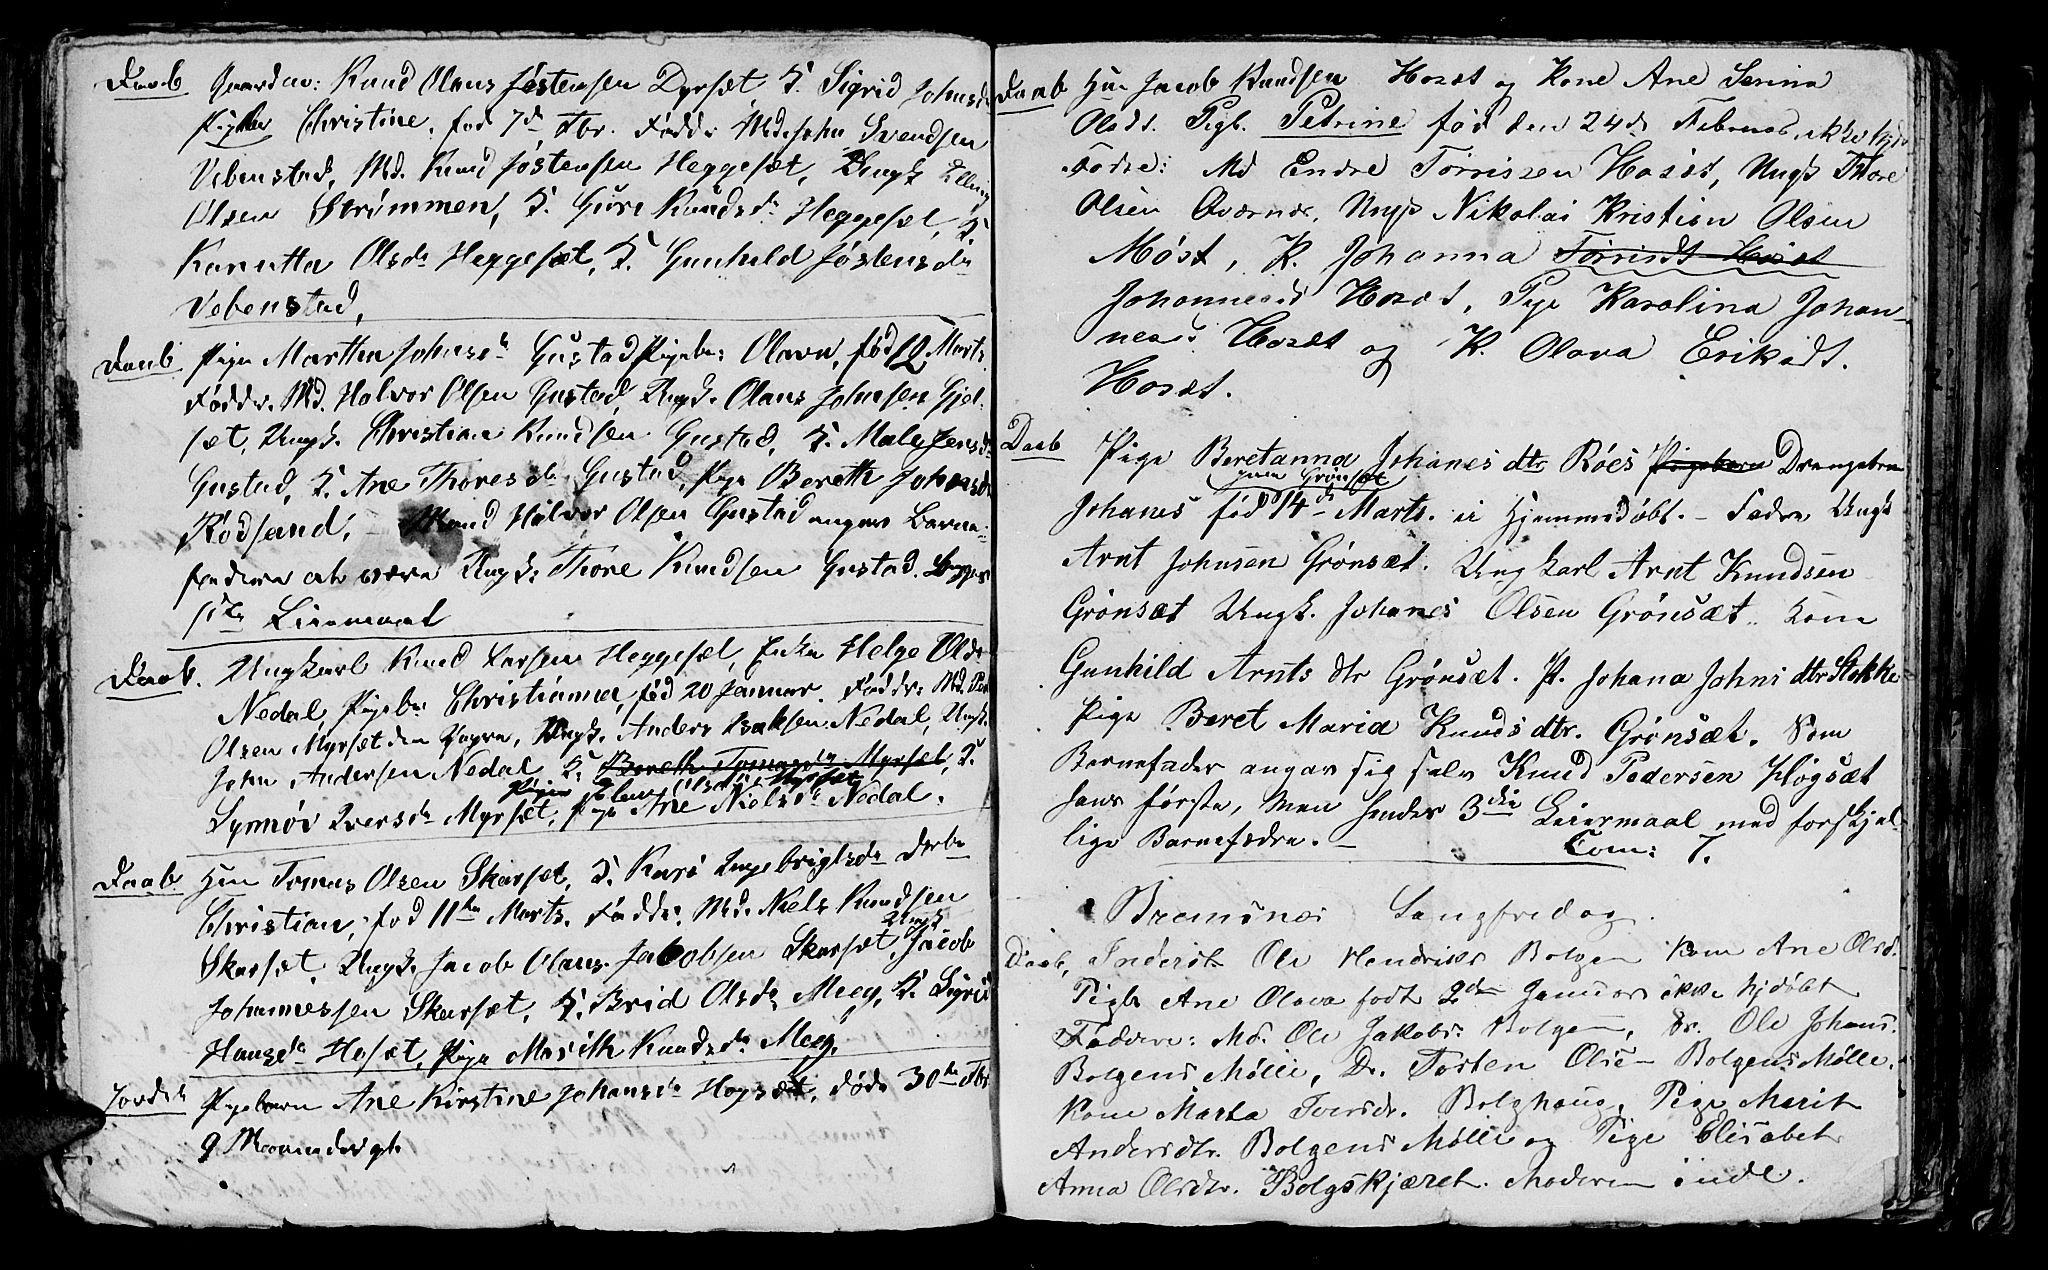 Daab Gaardm: Knud Olaus Jöstensen Dyrset K. Sigrid Johnsd
Pigebr Christine, fød 7de Fbr. Faddr: Md. John Svendsen
Vebenstad, Md. Knud Jöstensen Heggeset, Ungk Elling
Olsen Strömmen, K. Guro Knudsdr Heggeset, K.
Karnutta Olsdr Heggeset, K. Gunhild Jöstensdr
Vebenstad.
Daab Pige Martha Johnsdr Gustad Pigebr: Olava, fød 12 Marts
Faddr. Md. Halvor Olsen Gustad, Ungk. Olaus Johnsen Gjel-
set, Ungk. Christian Knudsen Gustad, K. Male Jensdr
Gustad, K. Ane Thoresdr Gustad, Pige Berethe Johnsdr
Rödsand, – Mand Halvor Olsen Gustad angav Barne-
faderen at være Ungk. Thore Knudsen Gustad. Begges
1ste Leiermaal
Daab. Ungkarl Knud Larsen Heggeset, Enke Helge Olsdr
Nedal, Pigebr Christianna, fød 20 Januar. Faddr: Md. Peder
Olsen Myrset den Yngre, Ungk. Anders Isaksen Nedal, Ungk.
John Andersen Nedal K. Bereth Tomasdr Myrset, K.
Pigen Elen Olsdr Myrset
Synnöv Iversdr Myrset, Pige Ane Nielsdr Nedal.
Daab Hm Tomas Olsen Skarset, K. Kari Ingebrigtsdr Drbn
Christian, fød 11te Marts. Faddr: Md. Niels Knudsen
Skarset, Ungk. Jacob Olaus Jacobsen Skarset, Ungk Jacob
Johannessen Skarset, K. Brid Olsdr Meeg, K. Sigrid
Hansdr Hoset, Pige Marith Knudsdr Meeg.
Jordk Pigebarn Ane Kirstine Johansdr Hogset, døde 30te Fbr
9 Maaneder gl.
Daab Hm Jacob Knudsen Hoset og Kone Ane Serina
Olsdt. Pigb. Petrine fød den 24de Februar, ikke hjd.
Fadre: Md Endre Torrissen Hoset, Ungk Thore
Olsen Qværnes, Ungk Nikolai Kristian Olsen
Møst, K. Johanna Torrisdt Hoset
Johannesd Hoset, Pige Karolina Johan-
nesd Hoset og K. Olava Eriksdt.
Hoset.
Daab Pige Beretanna Johanes dtr Röes Pigebarn Drengebrn
Grønset
Johanes fød 14de Marts. ei Hjemmedøbt. – Fadre Ungk
Arnt Johnsen Grönsæt. Ungkarl Arnt Knudsen
Grönsæt Ungk. Johanes Olsen Grönsæt. Kone
Gunhild Arnts dtr Grönsæt. P. Johana Johns dtr Stokke
Pige Beret Maria Knuds dtr. Grönsæt. Som
Barnefader angav sig selv Knud Pedersen Høgsæt
hans første, Men hendes 3die Leiermaal med forskjel-
lige Barnefædre. –
Com: 7.
Bremsnes Langfredag.
Daab, Inderst Ole Hendriks. Bolgen Kone Ane Olsd.
Pigb Ane Olava født 2den Januar ikke hjdøbt
Faddere: Md. Ole Jakobs. Bolgen, Dr. Ole Johans.
Bolgens Mølle, Dr. Torsten Olsen Bolgens Mølle.
Kone Marta Iversdr. Bolghaug, Pige Marit
Andersdtr. Bolgens Mølle og Pige Elisabet
Anna Olsdtr. Bolgskjæret. Moderen indl.